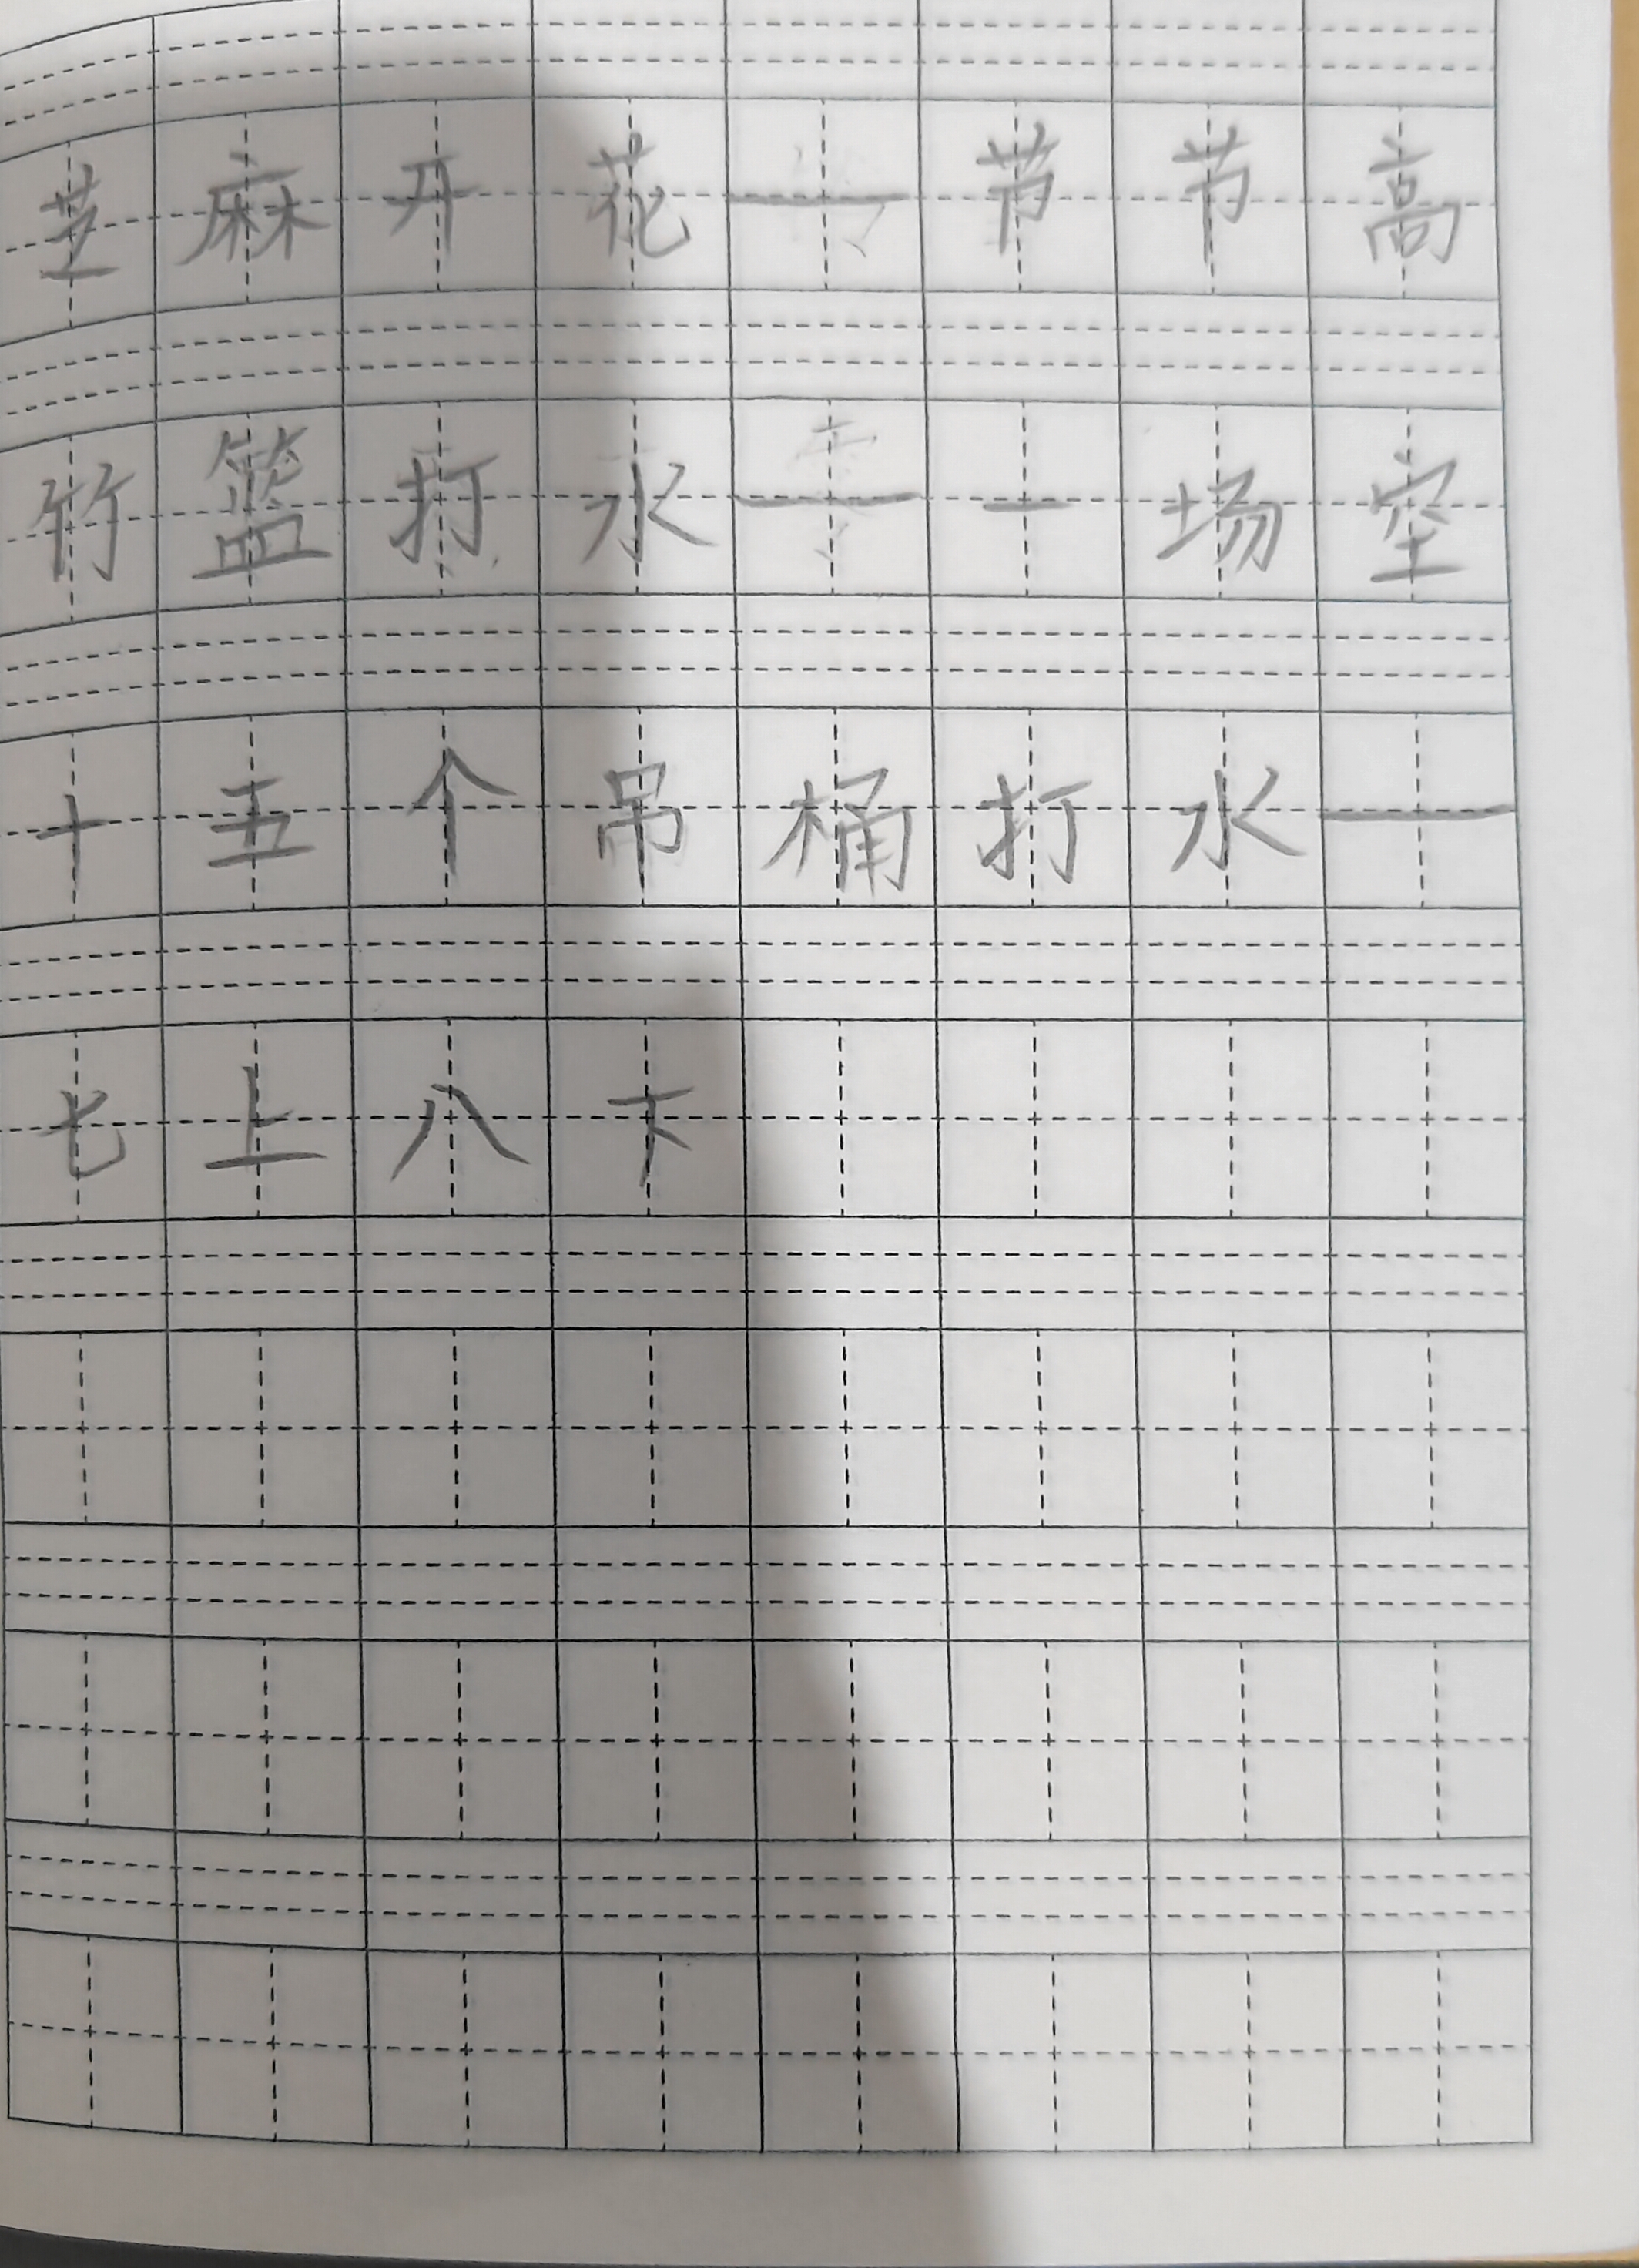 芝麻开花—节节高
竹篮打水—一场空
十五个吊桶打水—
七上八下